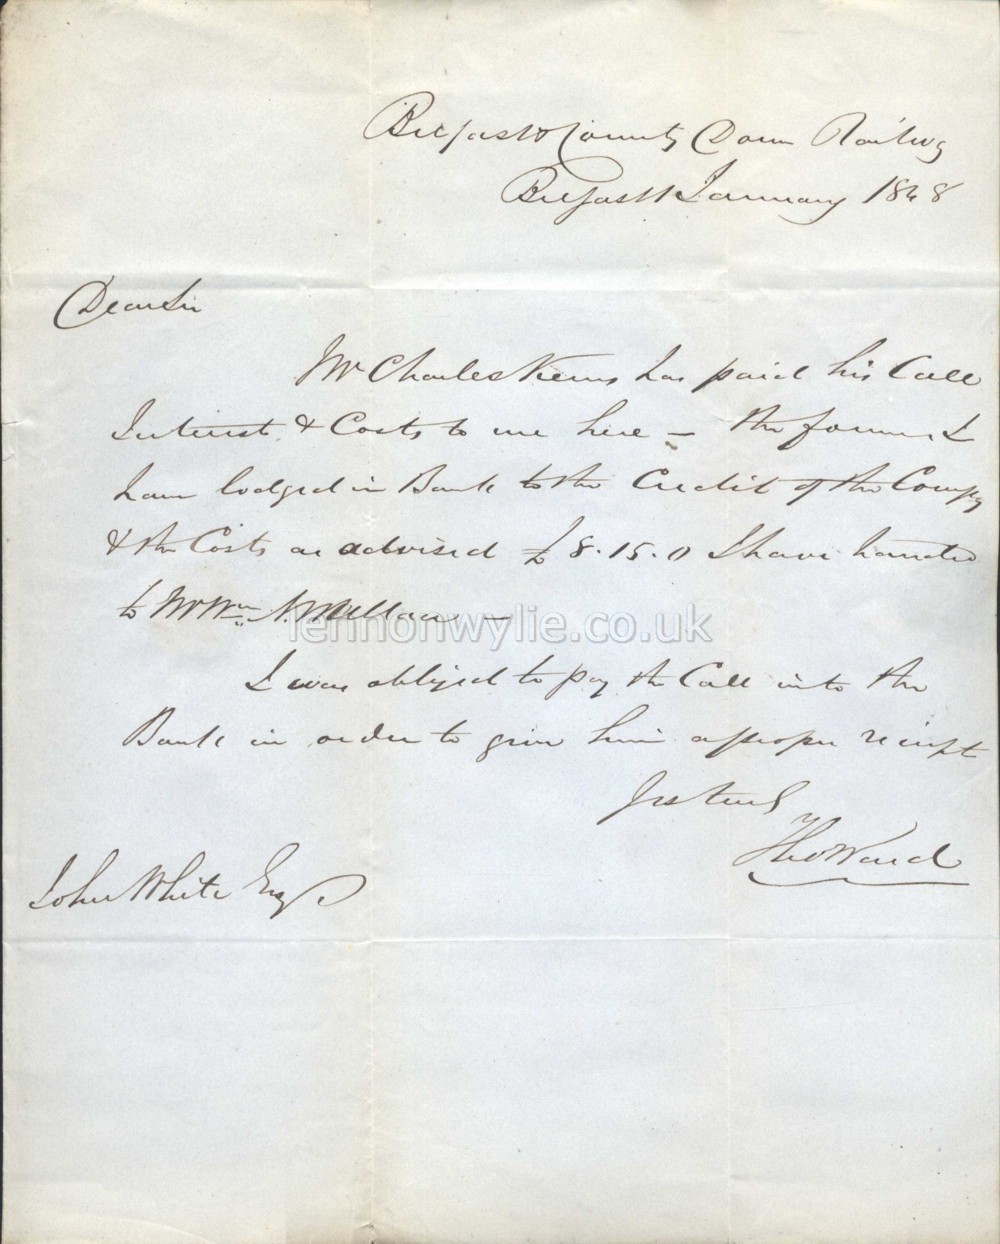 Belfast & County Down Railwy
Belfast January 1848
Dear Sir
Mr Charles has paid his Call
Interest & Costs to me here – the former I
have lodged in Bank to the Credit of the Compy
& the Costs as advised £8.15.0 I have handed
to Mr Wm
lennonwylie.co.uk
I was obliged to pay the Call into the
Bank in order to give him a proper receipt
Yrs truly
Tho Ward
John White Esq